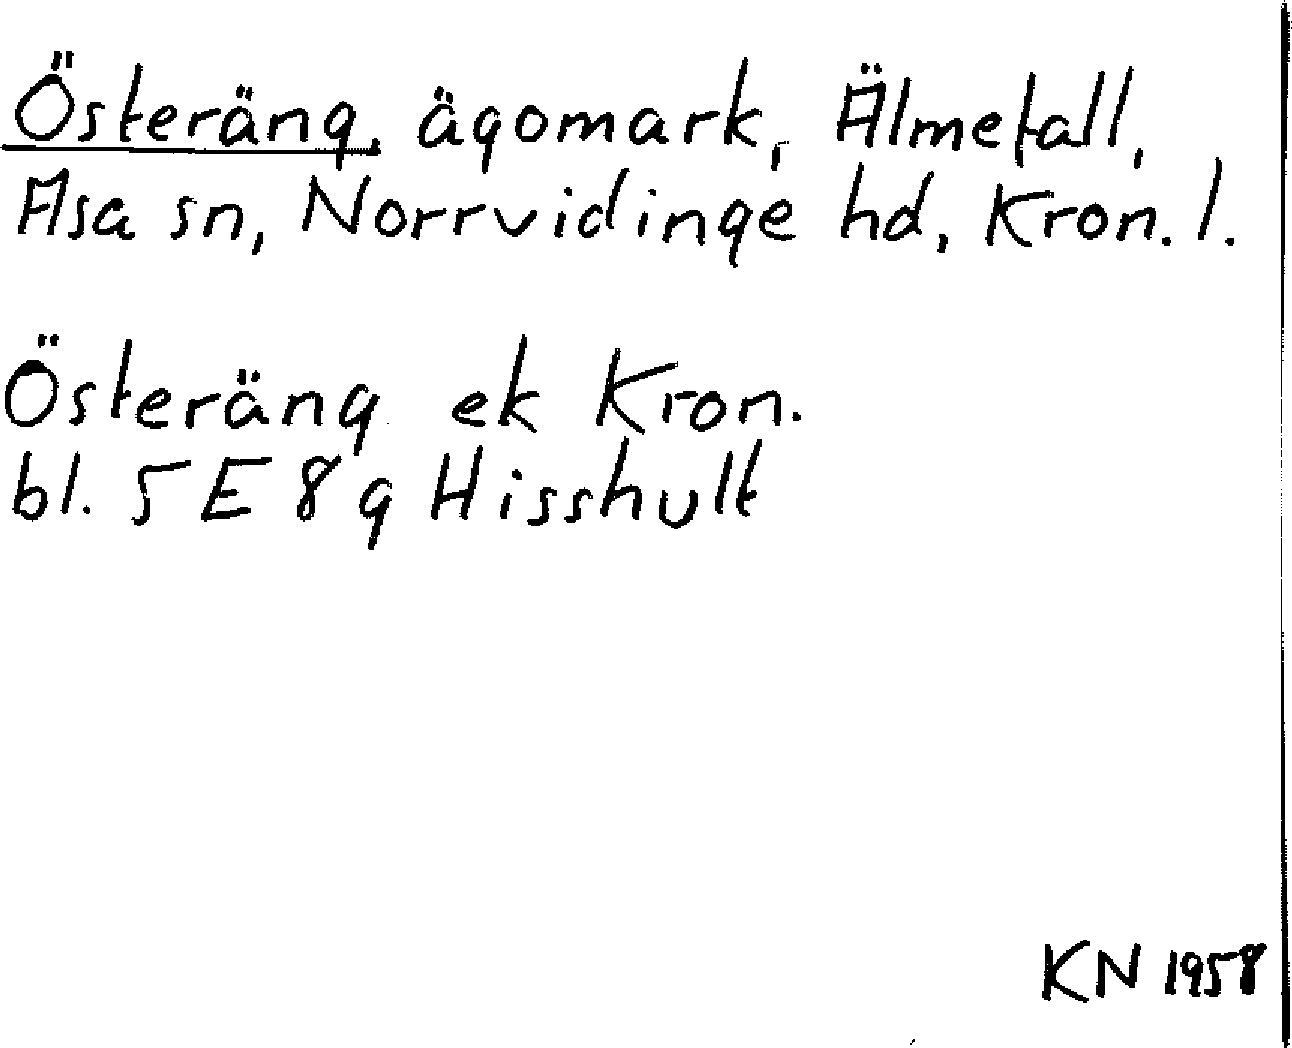 Österäng, ägomark, Älmefall,
Asa sn, Norrvidinge hd, Kron. l.
Österäng ek Kron.
bl. 5E 8g Hisshult
KN 1958